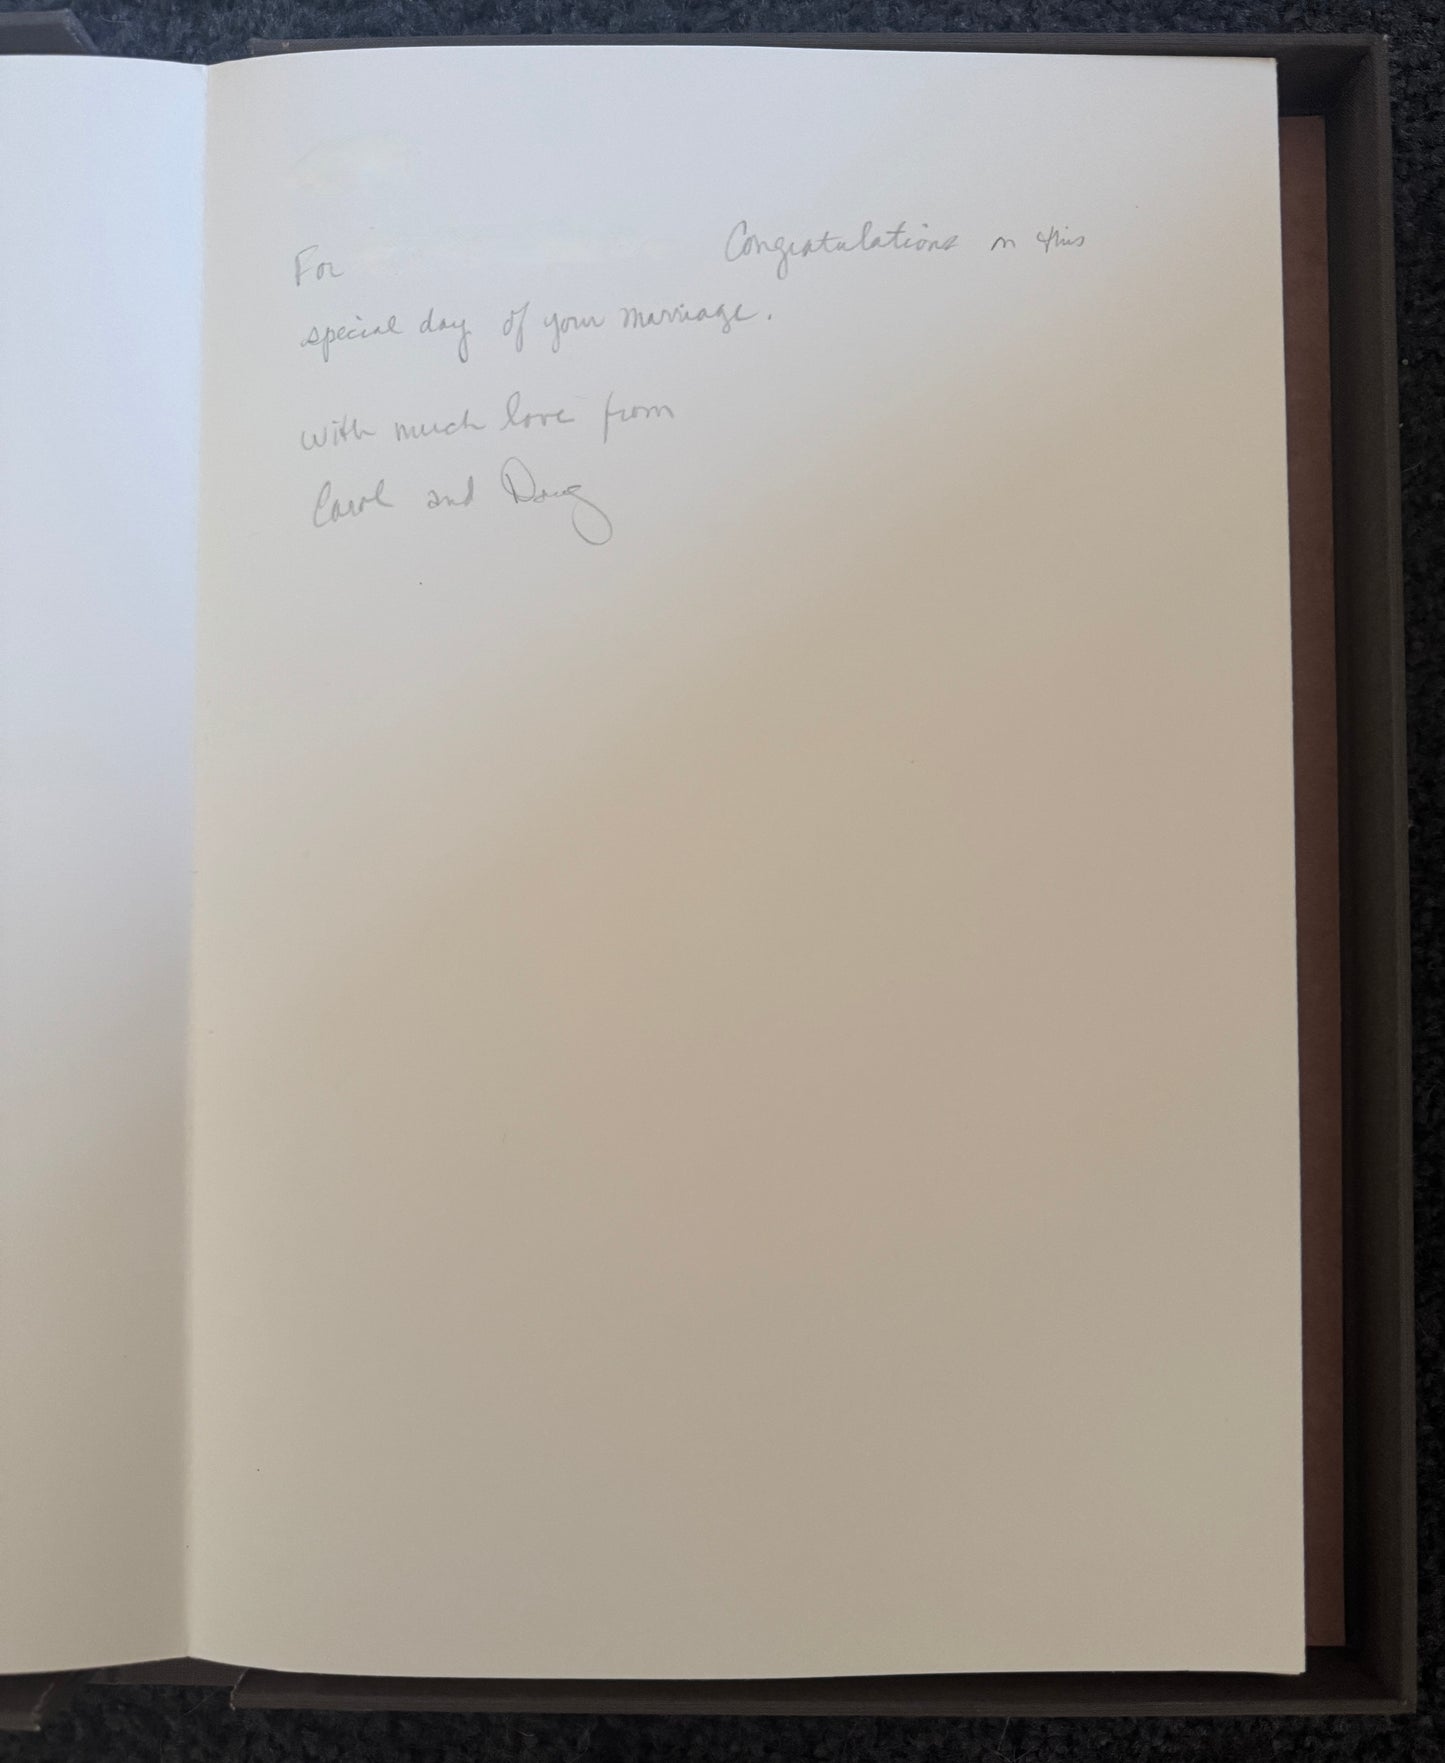 For Congratulations on this
special day of your marriage.
with much love from
Carol and Doug